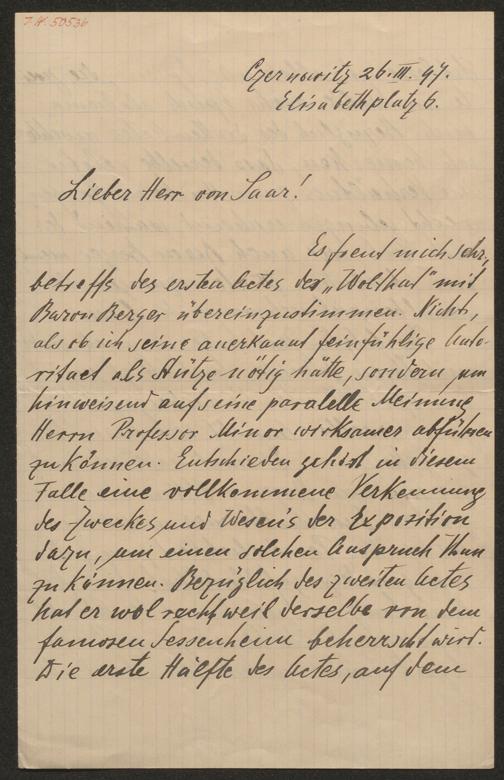 J.N. 50536
Czernowitz 26. III. 97.
Elisabethplatz 6.
Lieber Herr von Saar!
Es freut mich sehr,
betreffs des ersten Actes der „Wolthat" mit
Baron Berger übereinzustimmen. Nicht,
als ob ich seine anerkannt feinfühlige Auto-
ritaet als Stütze nötig hätte, sondern um
hinweisend auf seine paralelle Meinung
Herrn Professor Minor wirksamer abführen
zu können. Entschieden gehört in diesem
Falle eine vollkommene Verkennung
des Zweckes und Wesen's der Exposition
dazu, um einen solchen Ausspruch thun
zu können. Bezüglich des zweiten Actes
hat er wol recht weil derselbe von dem
famosen Sessenheim beherrscht wird.
Die erste Hälfte des Actes, auf dem